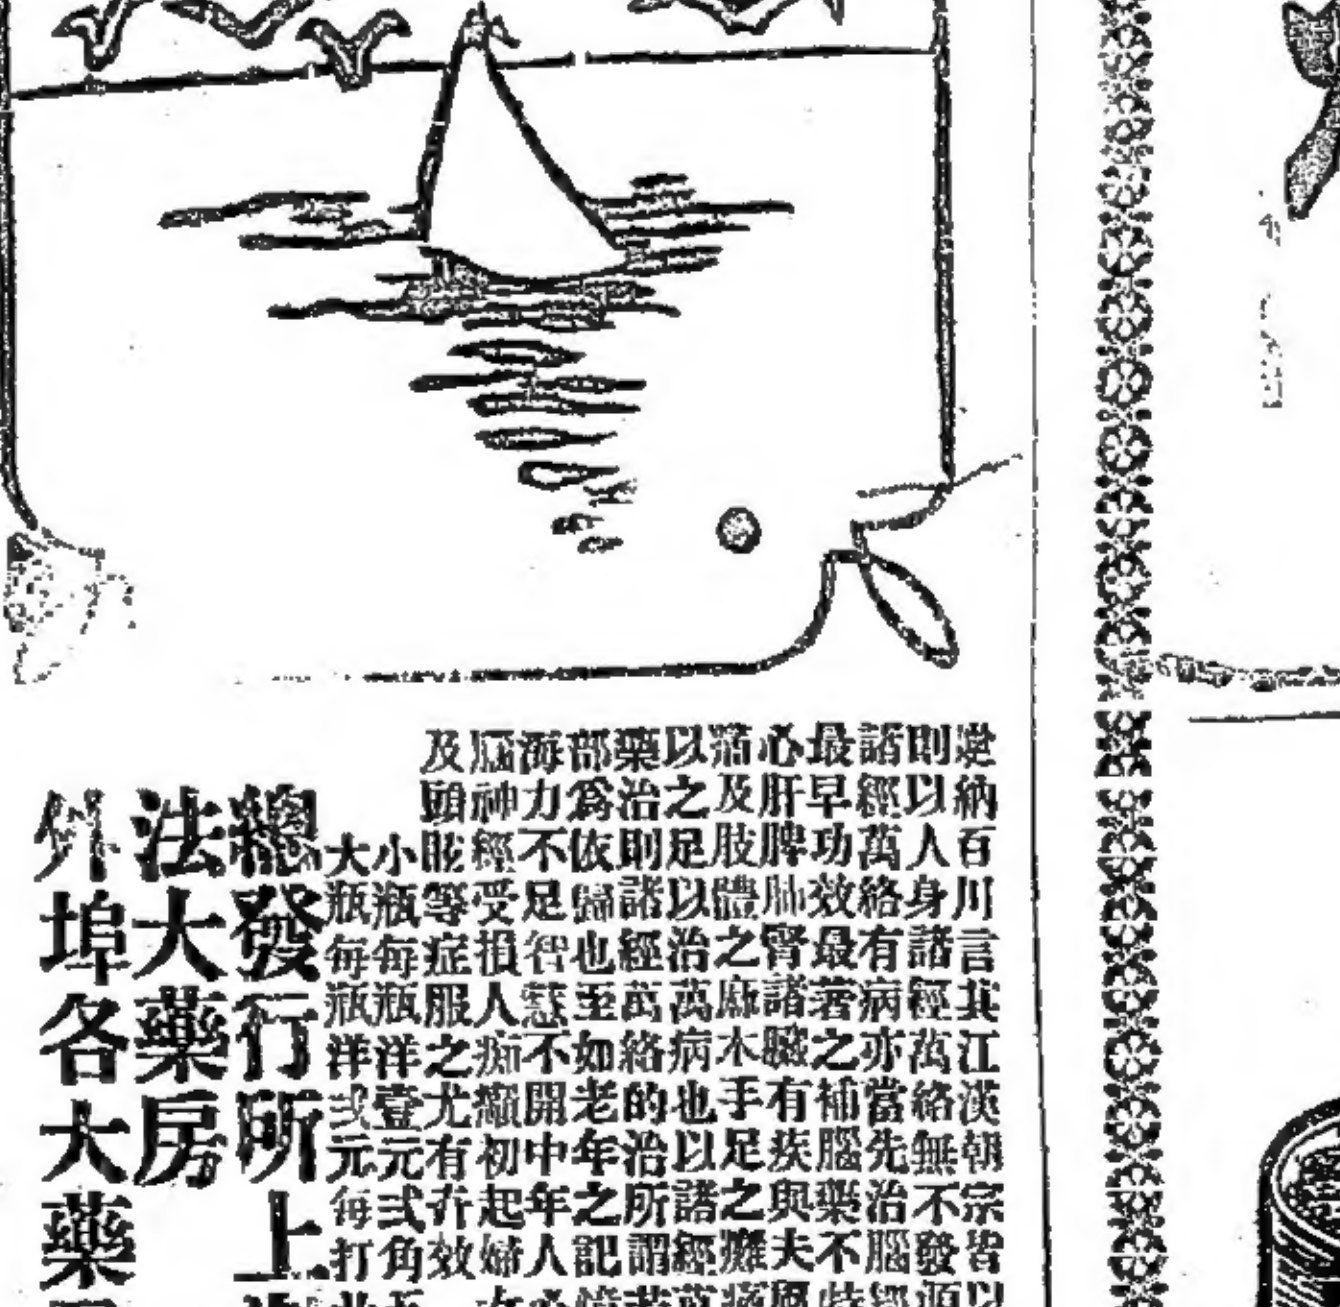 納百川言其江漢朝宗皆以
則以人身諸經萬絡無不發源
諸經萬絡有病亦當先治腦經
最早功效最著之補腦藥不特
心肝脾肺腎諸臟有疾與夫
及肢體之麻木手足之癱瘓
以之足以治萬病也以諸經萬
藥治則諸經萬絡的治所謂
部爲依歸也至如老年之記憶
海力不足智慧不開中年人心
神經受損人痴癲初起婦女
及頭眩等症服之尤有奇效
小瓶每瓶洋壹元弍角
大瓶每瓶洋弍元每打
總發行所上
法大藥房
外埠各大藥